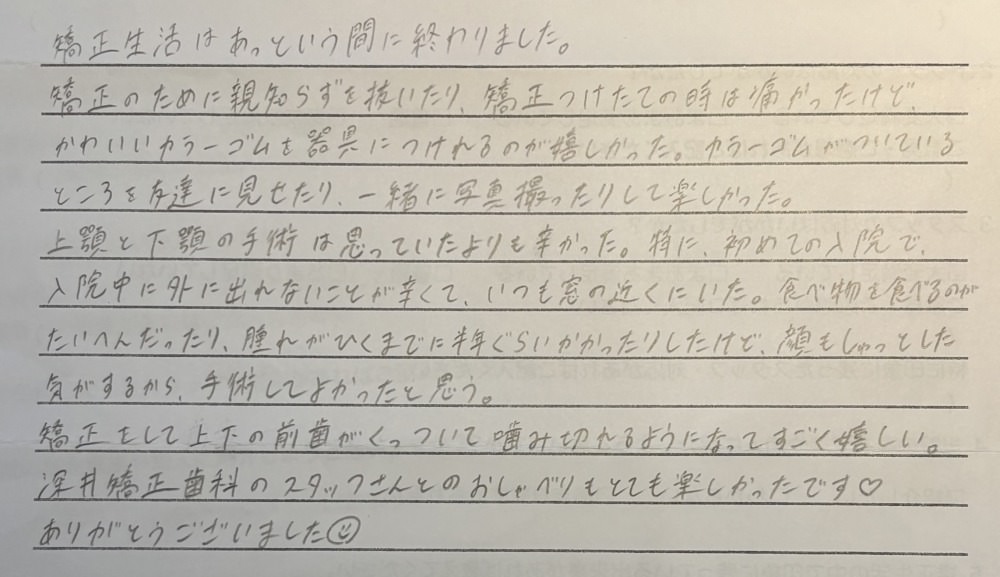 矯正生活はあっという間に終わりました。
矯正のために親知らずを抜いたり、矯正つけたての時は痛かったけど、
かわいいカラーゴムを器具につけれるのが嬉しかった。カラーゴムがついている
ところを友達に見せたり、一緒に写真撮ったりして楽しかった。
上顎と下顎の手術は思っていたよりも辛かった。特に、初めての入院で、
入院中に外に出れないことが辛くて、いつも窓の近くにいた。食べ物を食べるのが
たいへんだったり、腫れがひくまでに半年ぐらいかかったりしたけど、顔もしゅっとした
気がするから、手術してよかったと思う。
矯正をして上下の前歯がくっついて噛み切れるようになってすごく嬉しい。
深井矯正歯科のスタッフさんとのおしゃべりもとても楽しかったです♡
ありがとうございました☺